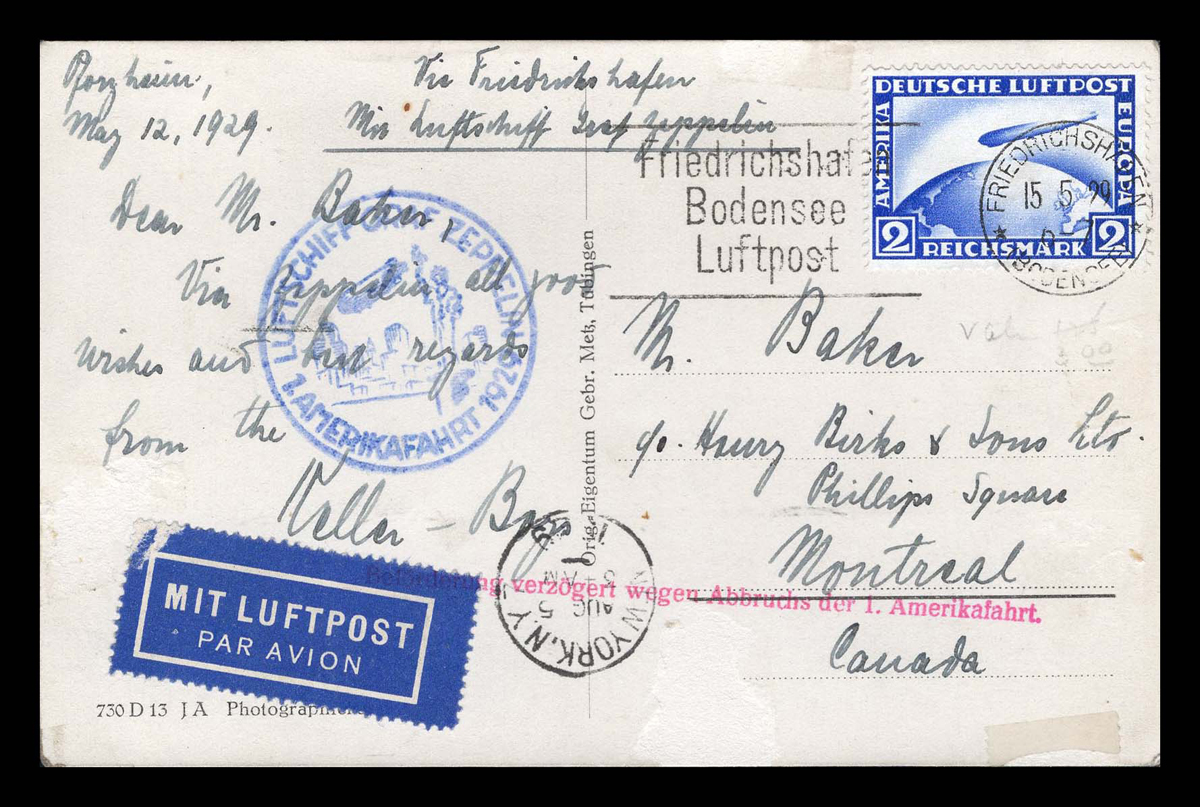 Pforzheim,
May 12, 1929.
Via Friedrichshafen
Mit Luftschiff Graf Zeppelin
Dear Mr. Baker,
Via Zeppelin all good
wishes and best regards
from the
Keller - Boys
LUFTSCHIFF GRAF ZEPPELIN
1. AMERIKAFAHRT 1929
MIT LUFTPOST
PAR AVION
730 D 13 J A
Orig.-Eigentum Gebr. Metz, Tübingen
Friedrichshafen
Bodensee
Luftpost
DEUTSCHE LUFTPOST
AMERIKA
EUROPA
2 REICHSMARK 2
FRIEDRICHSHAFEN
15 5 29
(BODENSEE)
Mr. Baker
c/o. Henry Birks & Sons Ltd.
Phillips Square
Montreal
Canada
Beförderung verzögert wegen Abbruchs der 1. Amerikafahrt.
NEW YORK, N.Y.
AUG 5
AM